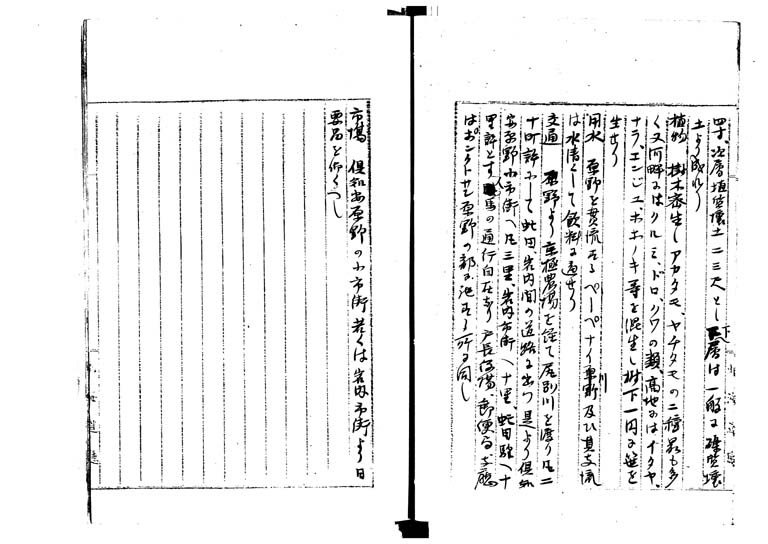 四寸、次層埴質壌土二三尺とし下層は一般に礫質壌
土より成れり
植物 樹木密生しアカタモ、ヤチタモの二種最も多
く又河畔にはクルミ、ドロ、ノワの類、高地にはイタヤ、
ナラ、エンジユ、ホホノキ等を混生し樹下一円に笹を
生せり
用水 原野を貫流するペーペナイ川原野及ひ其支流
は水清くして飲料に適せり
交通 原野より京極農場を経て尻別川を渡り凡二
十町許にして虻田、岩内間の道路に出つ是より倶知
安原野小市街へ凡三里、岩内市街へ十里、虻田駅へ十
里許とす馬の通行自在なり戸長役場、郵便局、支庁
はポンクトサン原野の部に記する所に同し
市場 倶知安原野の小市街若くは岩内市街より日
要品を仰くへし
北海道庁